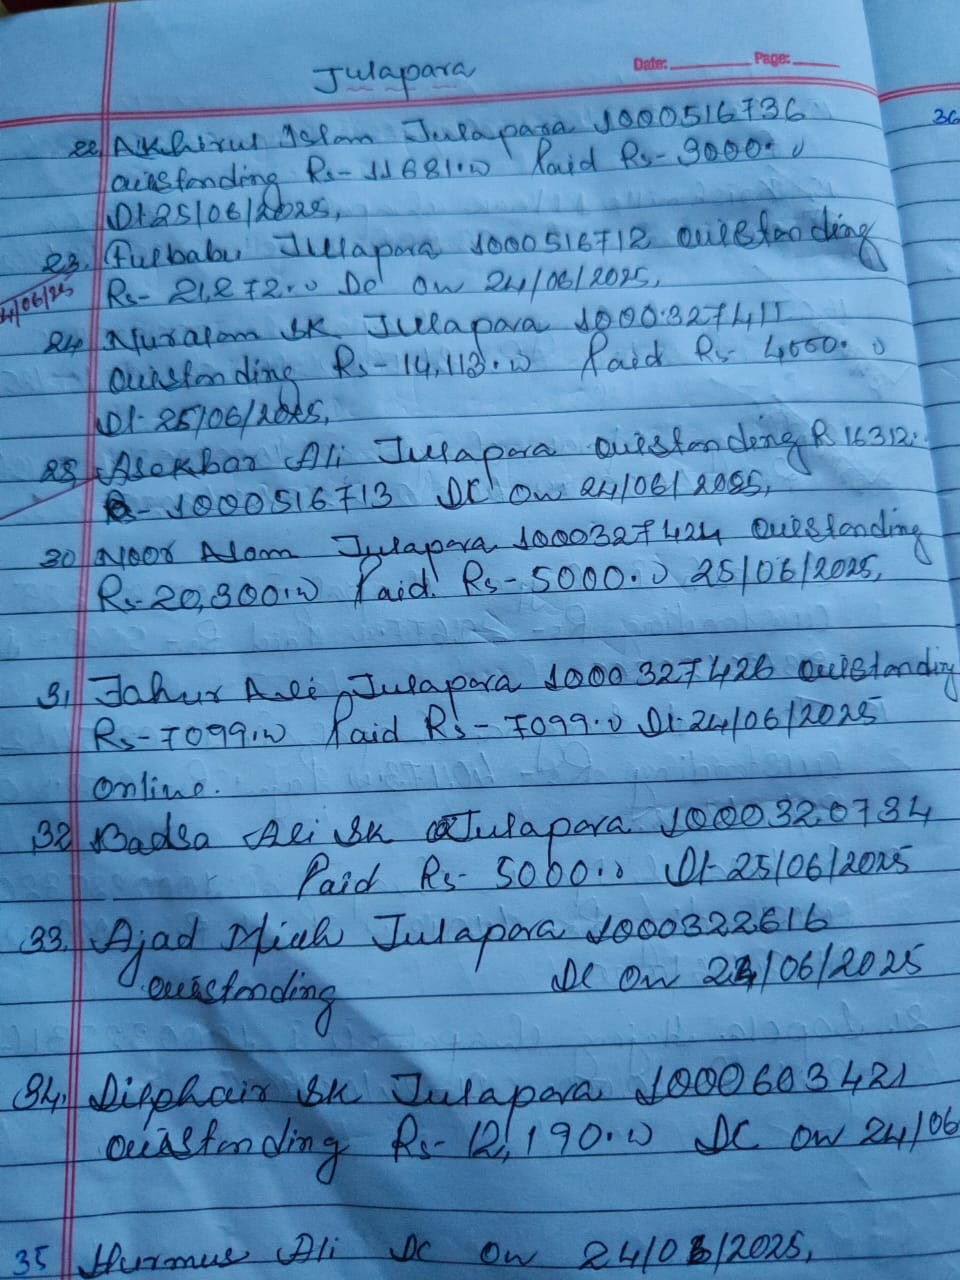 Julapara
Date: Page:
36
22. Akhirul Islam Julapara 1000516736
outstanding Rs- 11681.00 Paid Rs- 3000.00
Dt 25/06/2025,
23. Fulbabu Julapara 1000516712 outstanding
Rs- 21,272.00 DC on 24/06/2025,
24/06/25
24 Nuralom SK Julapara 1000327411
Outstanding Rs- 14,113.00 Paid Rs- 4,000.00
Dt- 25/06/2025,
Ali Julapara outstanding R 16312.
1000516713 DC on 24/06/2025,
30 Noor Alom Julapara 1000327424 outstanding
Rs- 20,300.00 Paid. Rs- 5000.00 25/06/2025,
31 Jahur Ali Julapara 1000327426 outstanding
Rs- 7099.00 Paid Rs- 7099.00 Dt- 24/06/2025
online.
32 Badsa Ali SK Julapara 1000320734
Paid Rs- 5000.00 Dt- 25/06/2025
33. Ajad Miah Julapara 1000322616
outstanding DC on 24/06/2025
34. SK Julapara 1000603421
outstanding Rs- 12,190.00 DC on 24/06
35 Hurmus Ali DC on 24/06/2025,